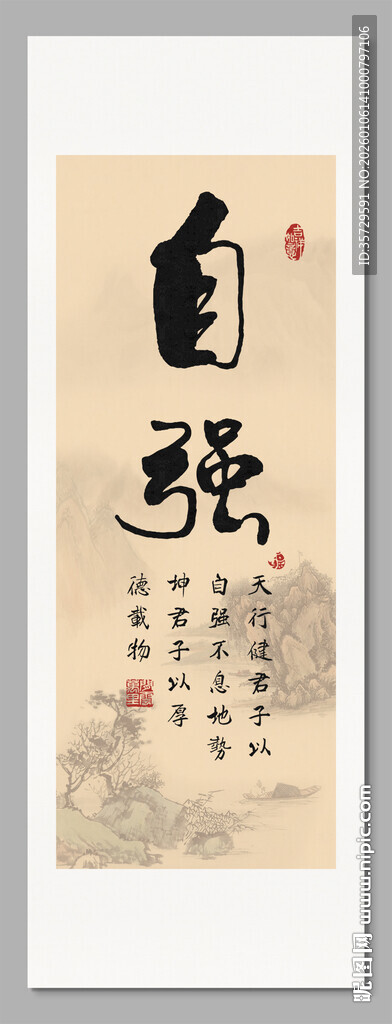 自强
天行健君子以
自强不息地势
坤君子以厚
德载物
ID:35729591 NO:20260106141000797106
昵图网 www.nipic.com